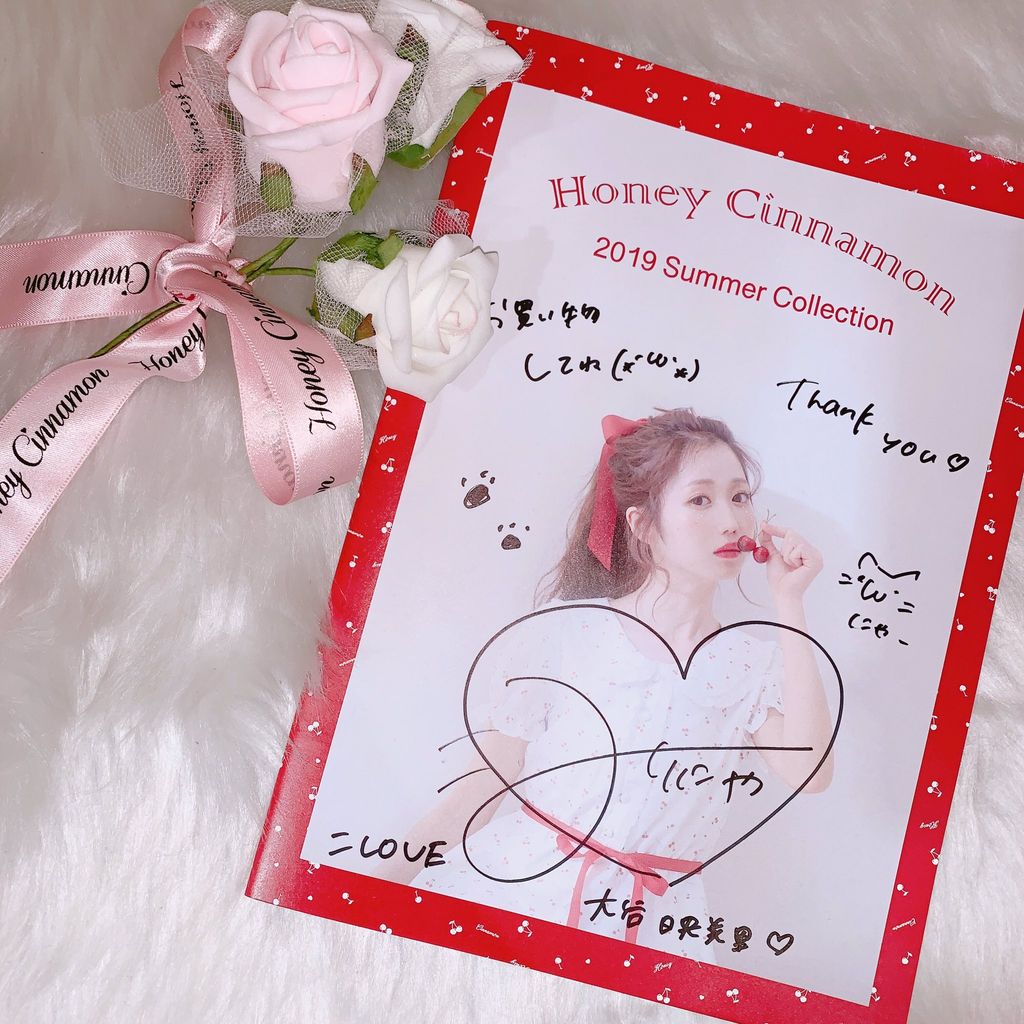 Honey Cinnamon
2019 Summer Collection
お買い物
してね(*´ω`*)
Thank you♡
=´ω`=
にゃー
にゃ
LOVE
大谷映美里♡
Honey
Cinnamon
Honey Cinnamon
Honey
Cinnamon
Honey